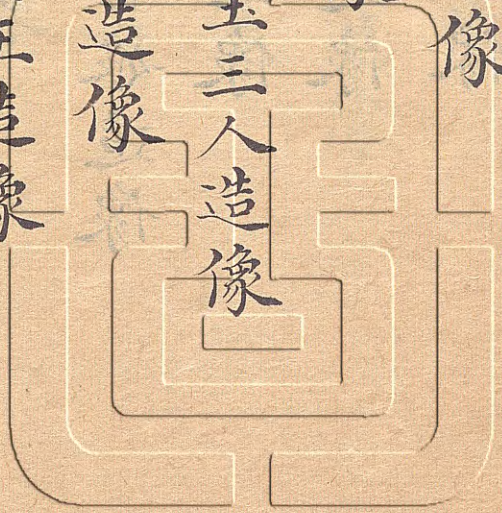 像
三人造像
造像
造像